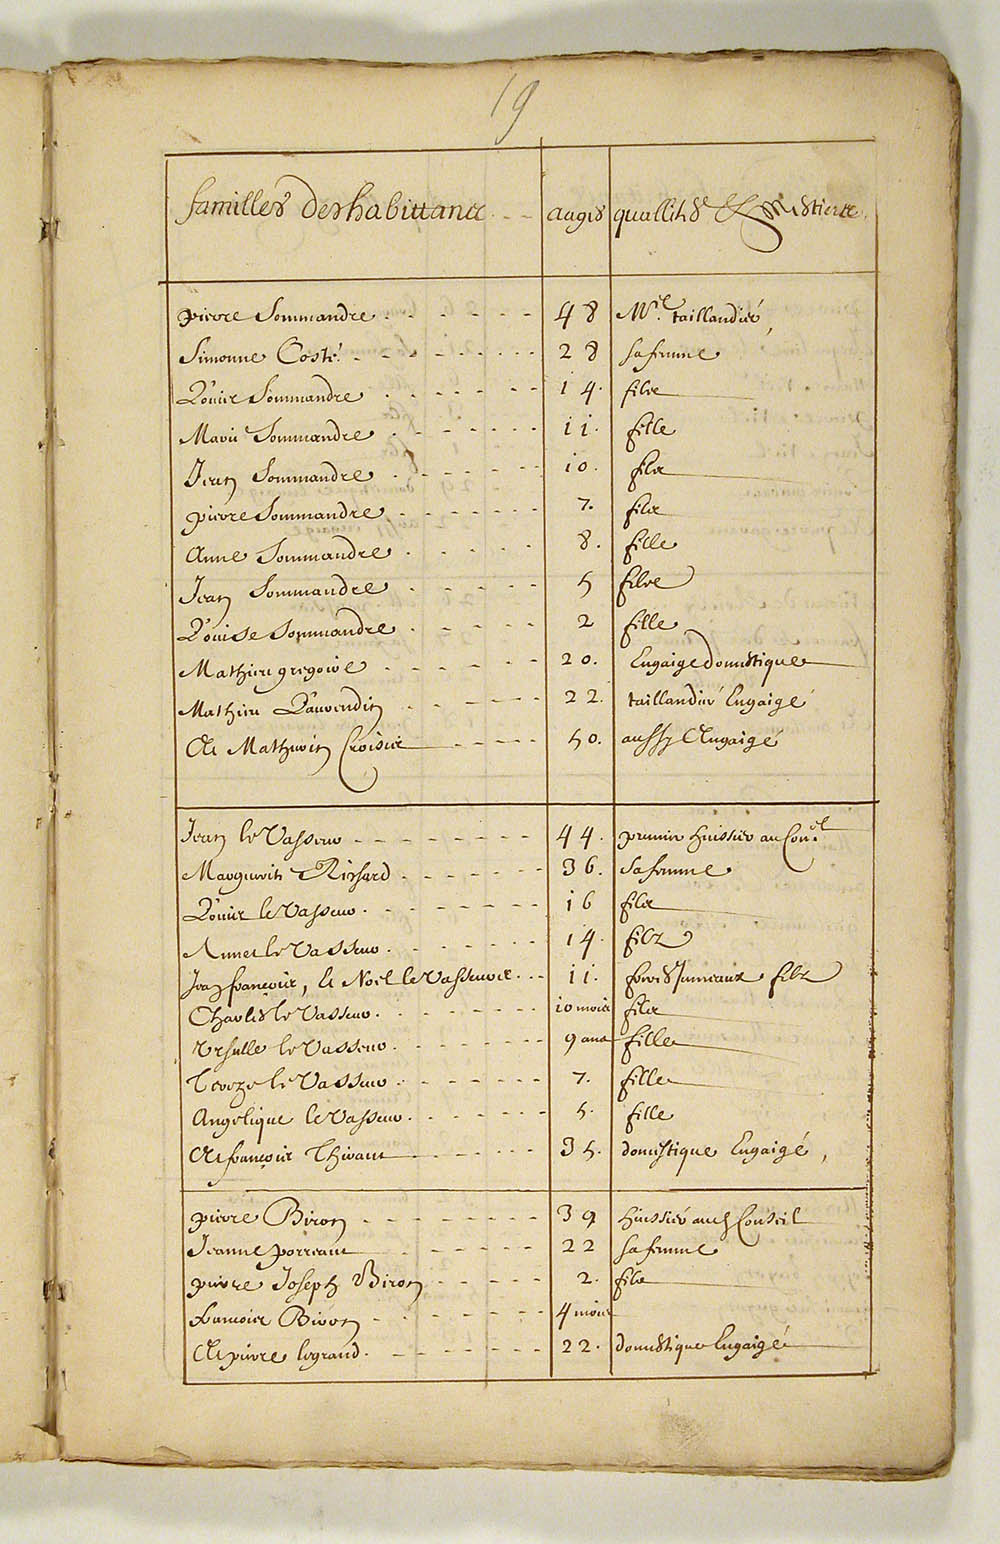 19
familles des habittans aages quallités Et Mestiers
pierre Sommandre 48 Me. taillandiér
Simonne Costé 28 Sa femme
Louis Sommandre 14. filx
Marie Sommandre 11. fille
Jean Sommandre 10. filx
pierre Sommandre 7. filx
Anne Sommandre 8. fille
Jean Sommandre 5 filx
Louise Sommandre 2 fille
Mathieu gregoire 20. Engaige domestique
Mathieu Lauvendin 22. taillandier Engaigé
Et Mathurin Croisier 50. aussy Engaigé
Jean le Vasseur 44. premier huissier au Con.el
Marguerite Richard 36. Sa femme
Louis le Vasseur 16 filx
Annet le Vasseur 14. filz
Jean françois, Et Noël le Vasseurs 11. freres Jumeaux filz
Charles le Vasseur 10 mois filx
Ursulle le Vasseur 9 ans fille
Tereze le Vasseur 7. fille
Angelique le Vasseur 5. fille
Et françois Thivant 35. domestique Engaigé,
pierre Biron 39 huissiér aud Conseil
Jeanne porreau 22 Sa femme
pierre Joseph Biron 2. filx
francois Biron 4 mois
Et pierre legrand. 22. domestique Engaigé